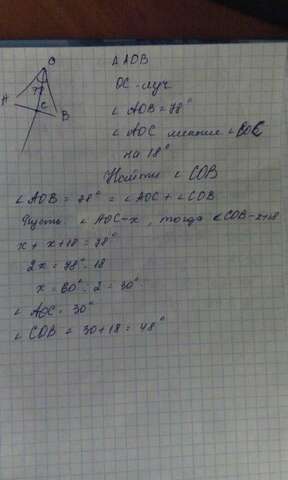 O
78
A
C
B
Δ AOB
OC - луч
∠ AOB = 78°
∠ AOC меньше ∠ BOC
на 18°
Найти ∠ COB
∠ AOB = 78° = ∠ AOC + ∠ COB
Пусть ∠ AOC - x, тогда ∠ COB - x+18
x + x + 18 = 78°
2x = 78° - 18
x = 60° : 2 = 30°
∠ AOC = 30°
∠ COB = 30 + 18 = 48°